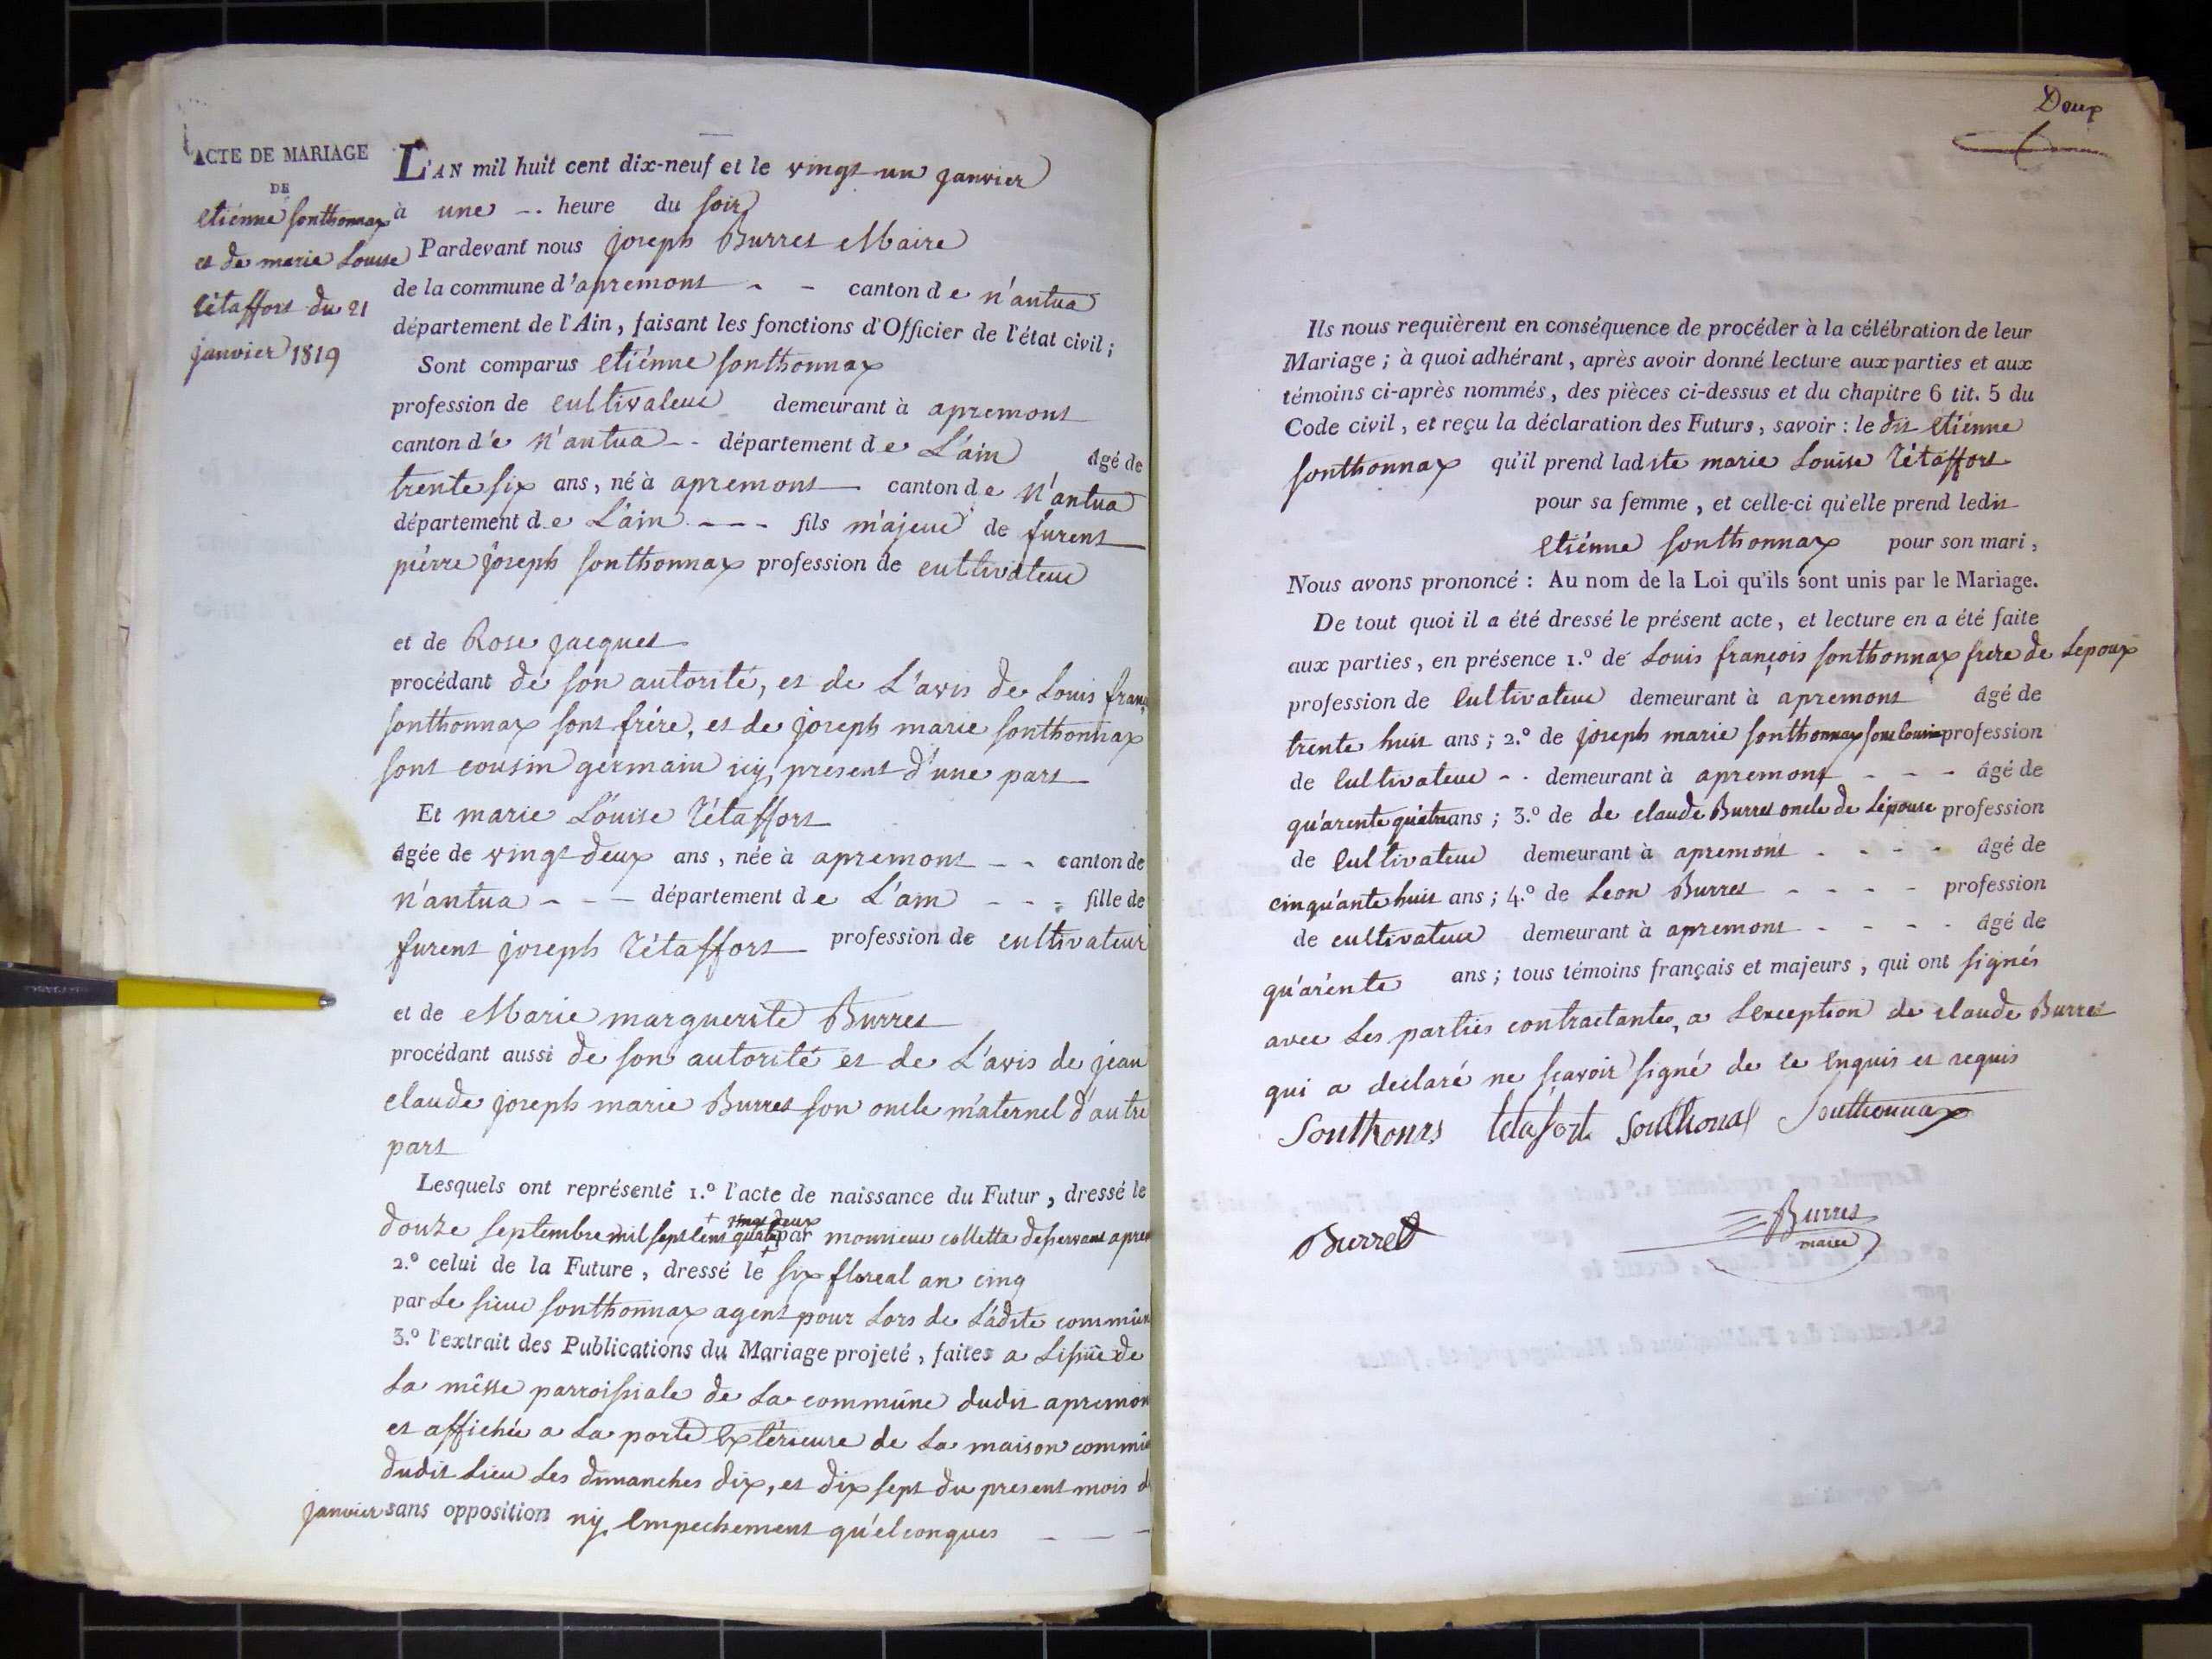 ACTE DE MARIAGE
DE
etiénne sonthonnax
et de marie Louise
tétaffort du 21
janvier 1819
L'AN mil huit cent dix-neuf et le vingt un janvier
à une -. heure du soir
Pardevant nous joseph Burret Maire
de la commune d'apremont - - canton de n'antua
département de l'Ain, faisant les fonctions d'Officier de l'état civil;
Sont comparus etiénne sonthonnax
profession de cultivateur demeurant à apremont
canton d'e n'antua -- département de L'ain âgé de
trente six ans, né à apremont canton de n'antua
département de L'ain --- fils m'ajeur de furent
piérre joseph sonthonnax profession de cultivateur
et de Rose jacquet
procédant de son autorité, et de L'avis de Louis franç
sonthonnax sont frére, et de joseph marie sonthonnax
sont cousin germain icy present d'une part
Et marie Louise tétaffort
âgée de vingt deux ans, née à apremont - - canton de
n'antua - - - département de L'ain - - - fille de
furent joseph tétaffort profession de cultivateur
et de Marie marguerite Burret
procédant aussi de son autorité et de L'avis de jean
claude joseph marie Burret son oncle m'aternel d'autre
part
Lesquels ont représenté 1.º l'acte de naissance du Futur, dressé le
vingt deux
douze septembre mil sept cent quatre par monsieur colletta desservant aprem
2.º celui de la Future, dressé le six floreal an cinq
par Le sieur sonthonnax agent pour Lors de Ladite commun
3.º l'extrait des Publications du Mariage projeté, faites a Lissüe de
La mêsse parroissiale de La commûne dudit apremon
et affichée a La porte Extérieure de La maison commu
dudit Lieu Les dimanches dix, et dix sept du present mois d
janvier sans opposition ny Empechement qu'elconques - - -
Doux
Ils nous requièrent en conséquence de procéder à la célébration de leur
Mariage; à quoi adhérant, après avoir donné lecture aux parties et aux
témoins ci-après nommés, des pièces ci-dessus et du chapitre 6 tit. 5 du
Code civil, et reçu la déclaration des Futurs, savoir: le dit etiénne
sonthonnax qu'il prend ladite marie Louise tétaffort
pour sa femme, et celle-ci qu'elle prend ledit
etiénne sonthonnax pour son mari,
Nous avons prononcé: Au nom de la Loi qu'ils sont unis par le Mariage.
De tout quoi il a été dressé le présent acte, et lecture en a été faite
aux parties, en présence 1.º de Louis françois sonthonnax frere de Lepoux
profession de Cultivateur demeurant à apremont âgé de
trente huit ans; 2.º de joseph marie sonthonnax sont cousin profession
de Cultivateur - - demeurant à apremont - - - âgé de
qu'arente quatre ans; 3.º de de claude Burret oncle de Lépouse profession
de Cultivateur demeurant à apremont - - - - âgé de
cinqu'ante huit ans; 4.º de Leon Burret - - - - profession
de cultivateur demeurant à apremont - - - - âgé de
qu'arénte ans; tous témoins français et majeurs, qui ont signés
avec Les parties contractantes, a Lexception de claude Burret
qui a declaré ne sçavoir signé de ce Enquis et requis
tétafort Sonthonax Sonthonnax
Burret
Burret
maire